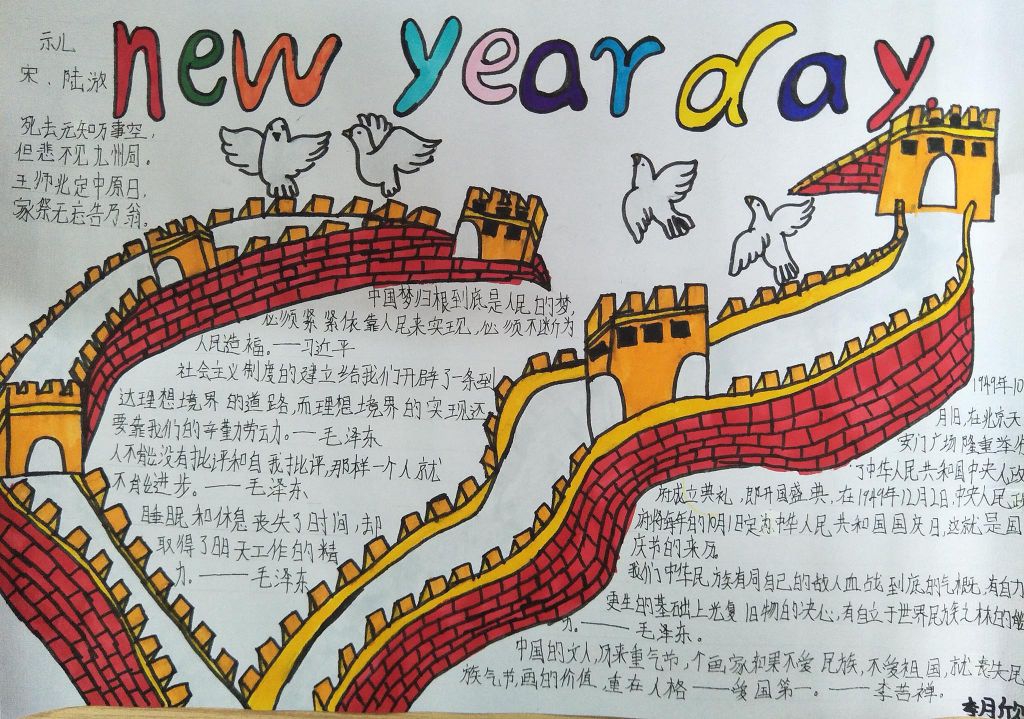 new year day
示儿
宋、陆游
死去元知万事空,
但悲不见九州同。
王师北定中原日,
家祭无忘告乃翁。
中国梦归根到底是人民的梦,
必须紧紧依靠人民来实现,必须不断为
人民造福。——习近平
社会主义制度的建立给我们开辟了一条到
达理想境界的道路,而理想境界的实现还
要靠我们的辛勤劳动。——毛泽东
人不能没有批评和自我批评,那样一个人就
不能进步。——毛泽东
睡眠和休息丧失了时间,却
取得了明天工作的精
力。——毛泽东
1949年10
月1日,在北京天
安门广场隆重举行
了中华人民共和国中央人政
府成立典礼,即开国盛典。在1949年12月2日,中央人民政
府将每年的10月1日定为中华人民共和国国庆日,这就是国
庆节的来历。
我们中华民族有同自己的敌人血战到底的气概,有自力
更生的基础上光复旧物的决心,有自立于世界民族之林的能
力。——毛泽东。
中国的文人,历来重气节,个画家如果不爱民族,不爱祖国,就丧失民
族气节,画的价值,重在人格——爱国第一。——李苦禅。